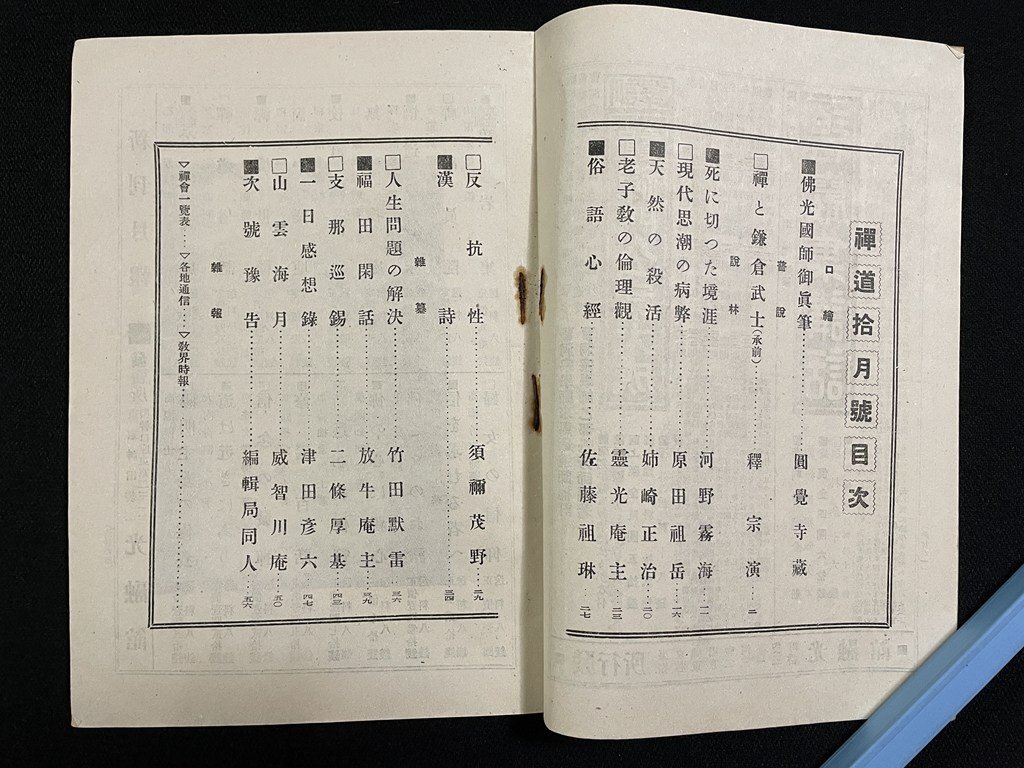 禪道拾月號目次
口繪
佛光國師御眞筆……圓覺寺藏
說
禪と鎌倉武士(承前)……釋宗演……二
說林
死に切つた境涯……河野霧海……一一
現代思潮の病弊……原田祖岳……一六
天然の殺活……姉崎正治……二〇
老子敎の倫理觀……靈光庵主……二三
俗語心經……佐藤祖琳……二七
反抗性……須禰茂野……二九
漢詩……三四
雜纂
人生問題の解決……竹田默雷……三六
福田閑話……放牛庵主……三九
支那巡錫……二條厚基……四三
一日感想錄……津田彥六……四七
山雲海月……威智川庵……五〇
次號豫吿……編輯局同人……五六
雜報
▽禪會一覽表……▽各地通信……▽敎界時報……